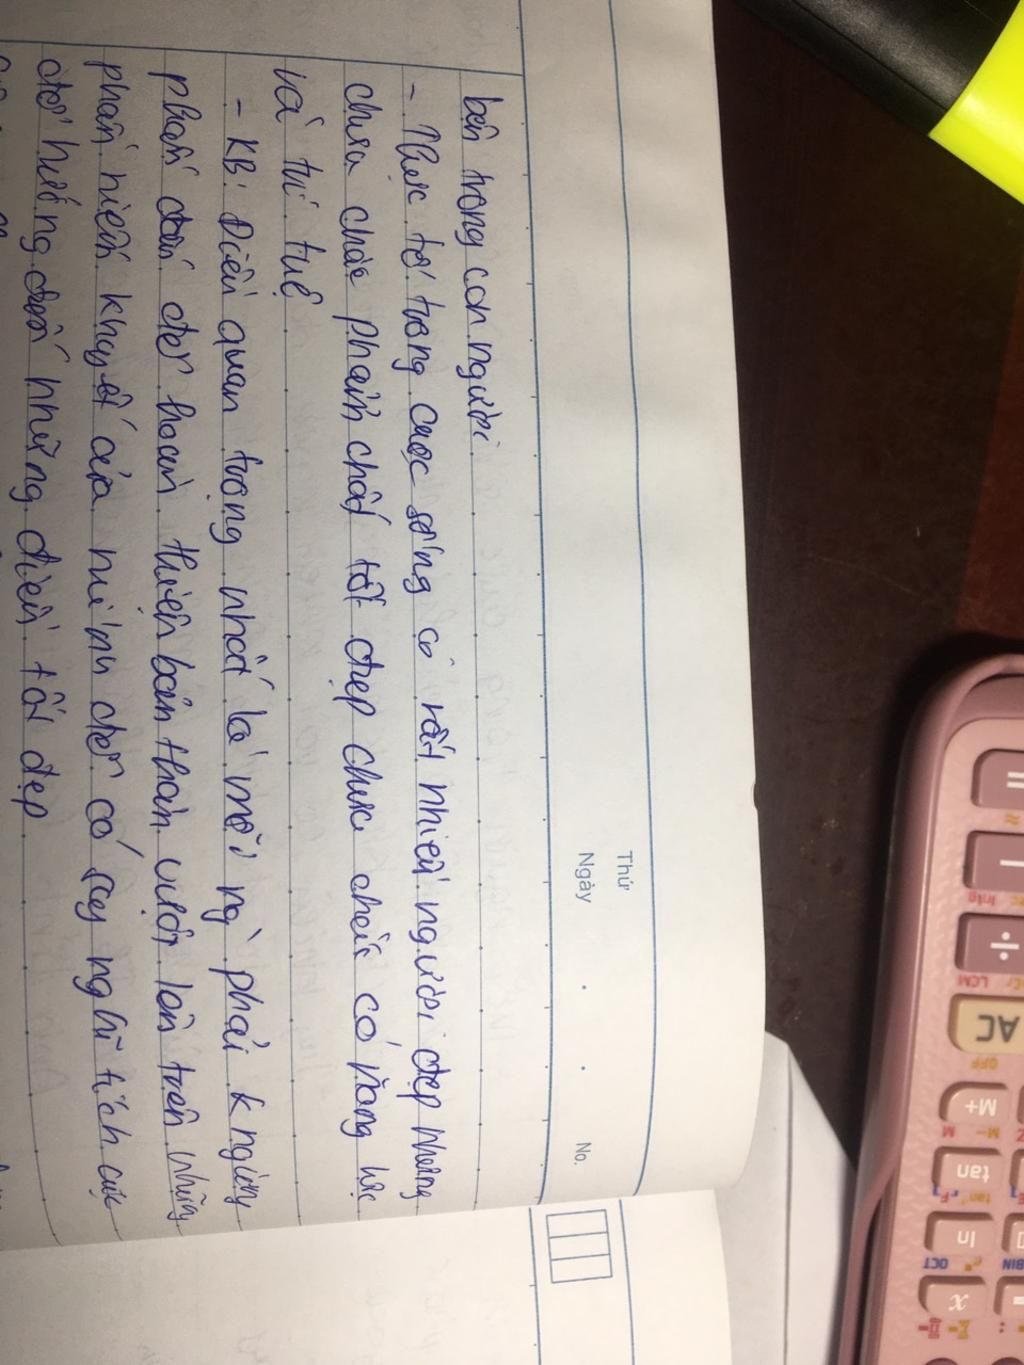 Thứ
Ngày . . No.
bên trong con người.
- Thực tế trong cuộc sống có rất nhiều người đẹp nhưng
chưa chắc phẩm chất tốt đẹp chưa chắc có năng lực
và trí tuệ
- KB: Điều quan trọng nhất là mỗi ng` phải k ngừng
phấn đấu để hoàn thiện bản thân vượt lên trên những
khuyết của mình để có suy nghĩ tích cực
để hướng đến những điều tốt đẹp
=
÷
LCM
AC
OFF
M+
M- M
tan
ln
OCT
BIN
x